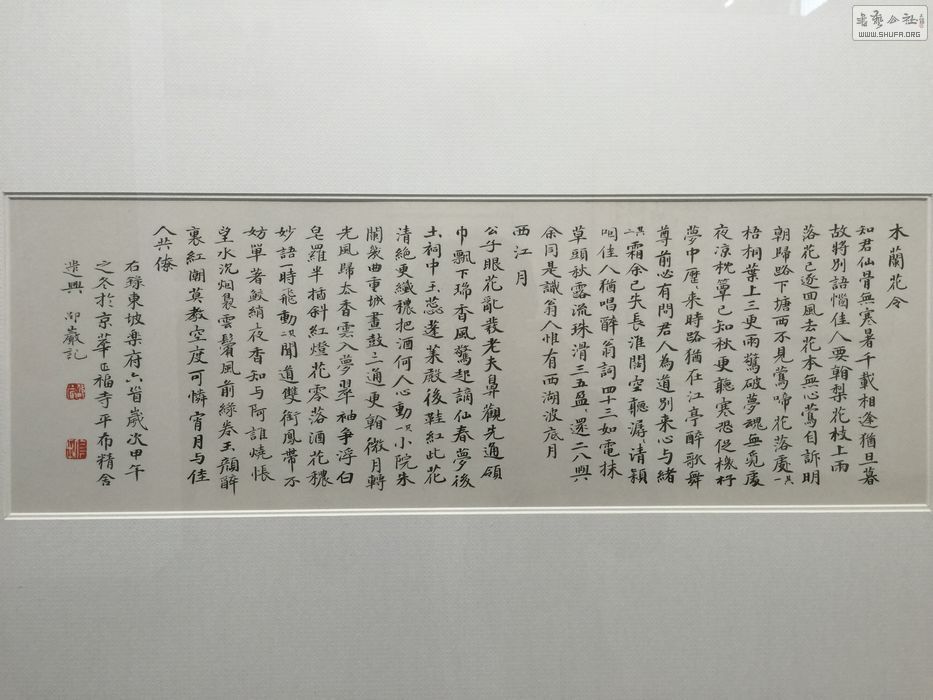 木蘭花令
知君仙骨無寒暑千載相逢猶旦暮
故將別語惱佳人要看梨花枝上雨
落花已逐回風去花本無心鶯自訴明
朝歸路下塘西不見鶯啼花落處其一
梧桐葉上三更雨驚破夢魂無覓處
夜涼枕簟已知秋更聽寒蛩促機杼
夢中歷歷來時路猶在江亭醉歌舞
尊前必有問君人為道別來心与緒
其二霜余已失長淮闊空聽潺潺清潁
咽佳人猶唱醉翁詞四十三如電抹
草頭秋露流珠滑三五盈盈還二八與
余同是識翁人惟有西湖波底月
西江月
公子眼花亂發老夫鼻觀先通領
巾飄下瑞香風驚起謫仙春夢後
土祠中玉蕊蓬萊殿後鞓紅此花
清絕更纖穠把酒何人心動其一小院朱
闌幾曲重城畫鼓三通更看微月轉
光風歸去香雲入夢翠袖爭浮白
皂羅半插斜紅燈花零落酒花穠
妙語一時飛動其二聞道雙銜鳳帶不
妨單著鮫綃夜香知与阿誰燒悵
望水沉烟裊雲鬢風前綠卷玉顏醉
裏紅潮莫教空度可憐宵月与佳
人共僚
右錄東坡樂府六首歲次甲午
之冬於京華正福寺平布精舍
遣興 巖記
WWW.SHUFA.ORG